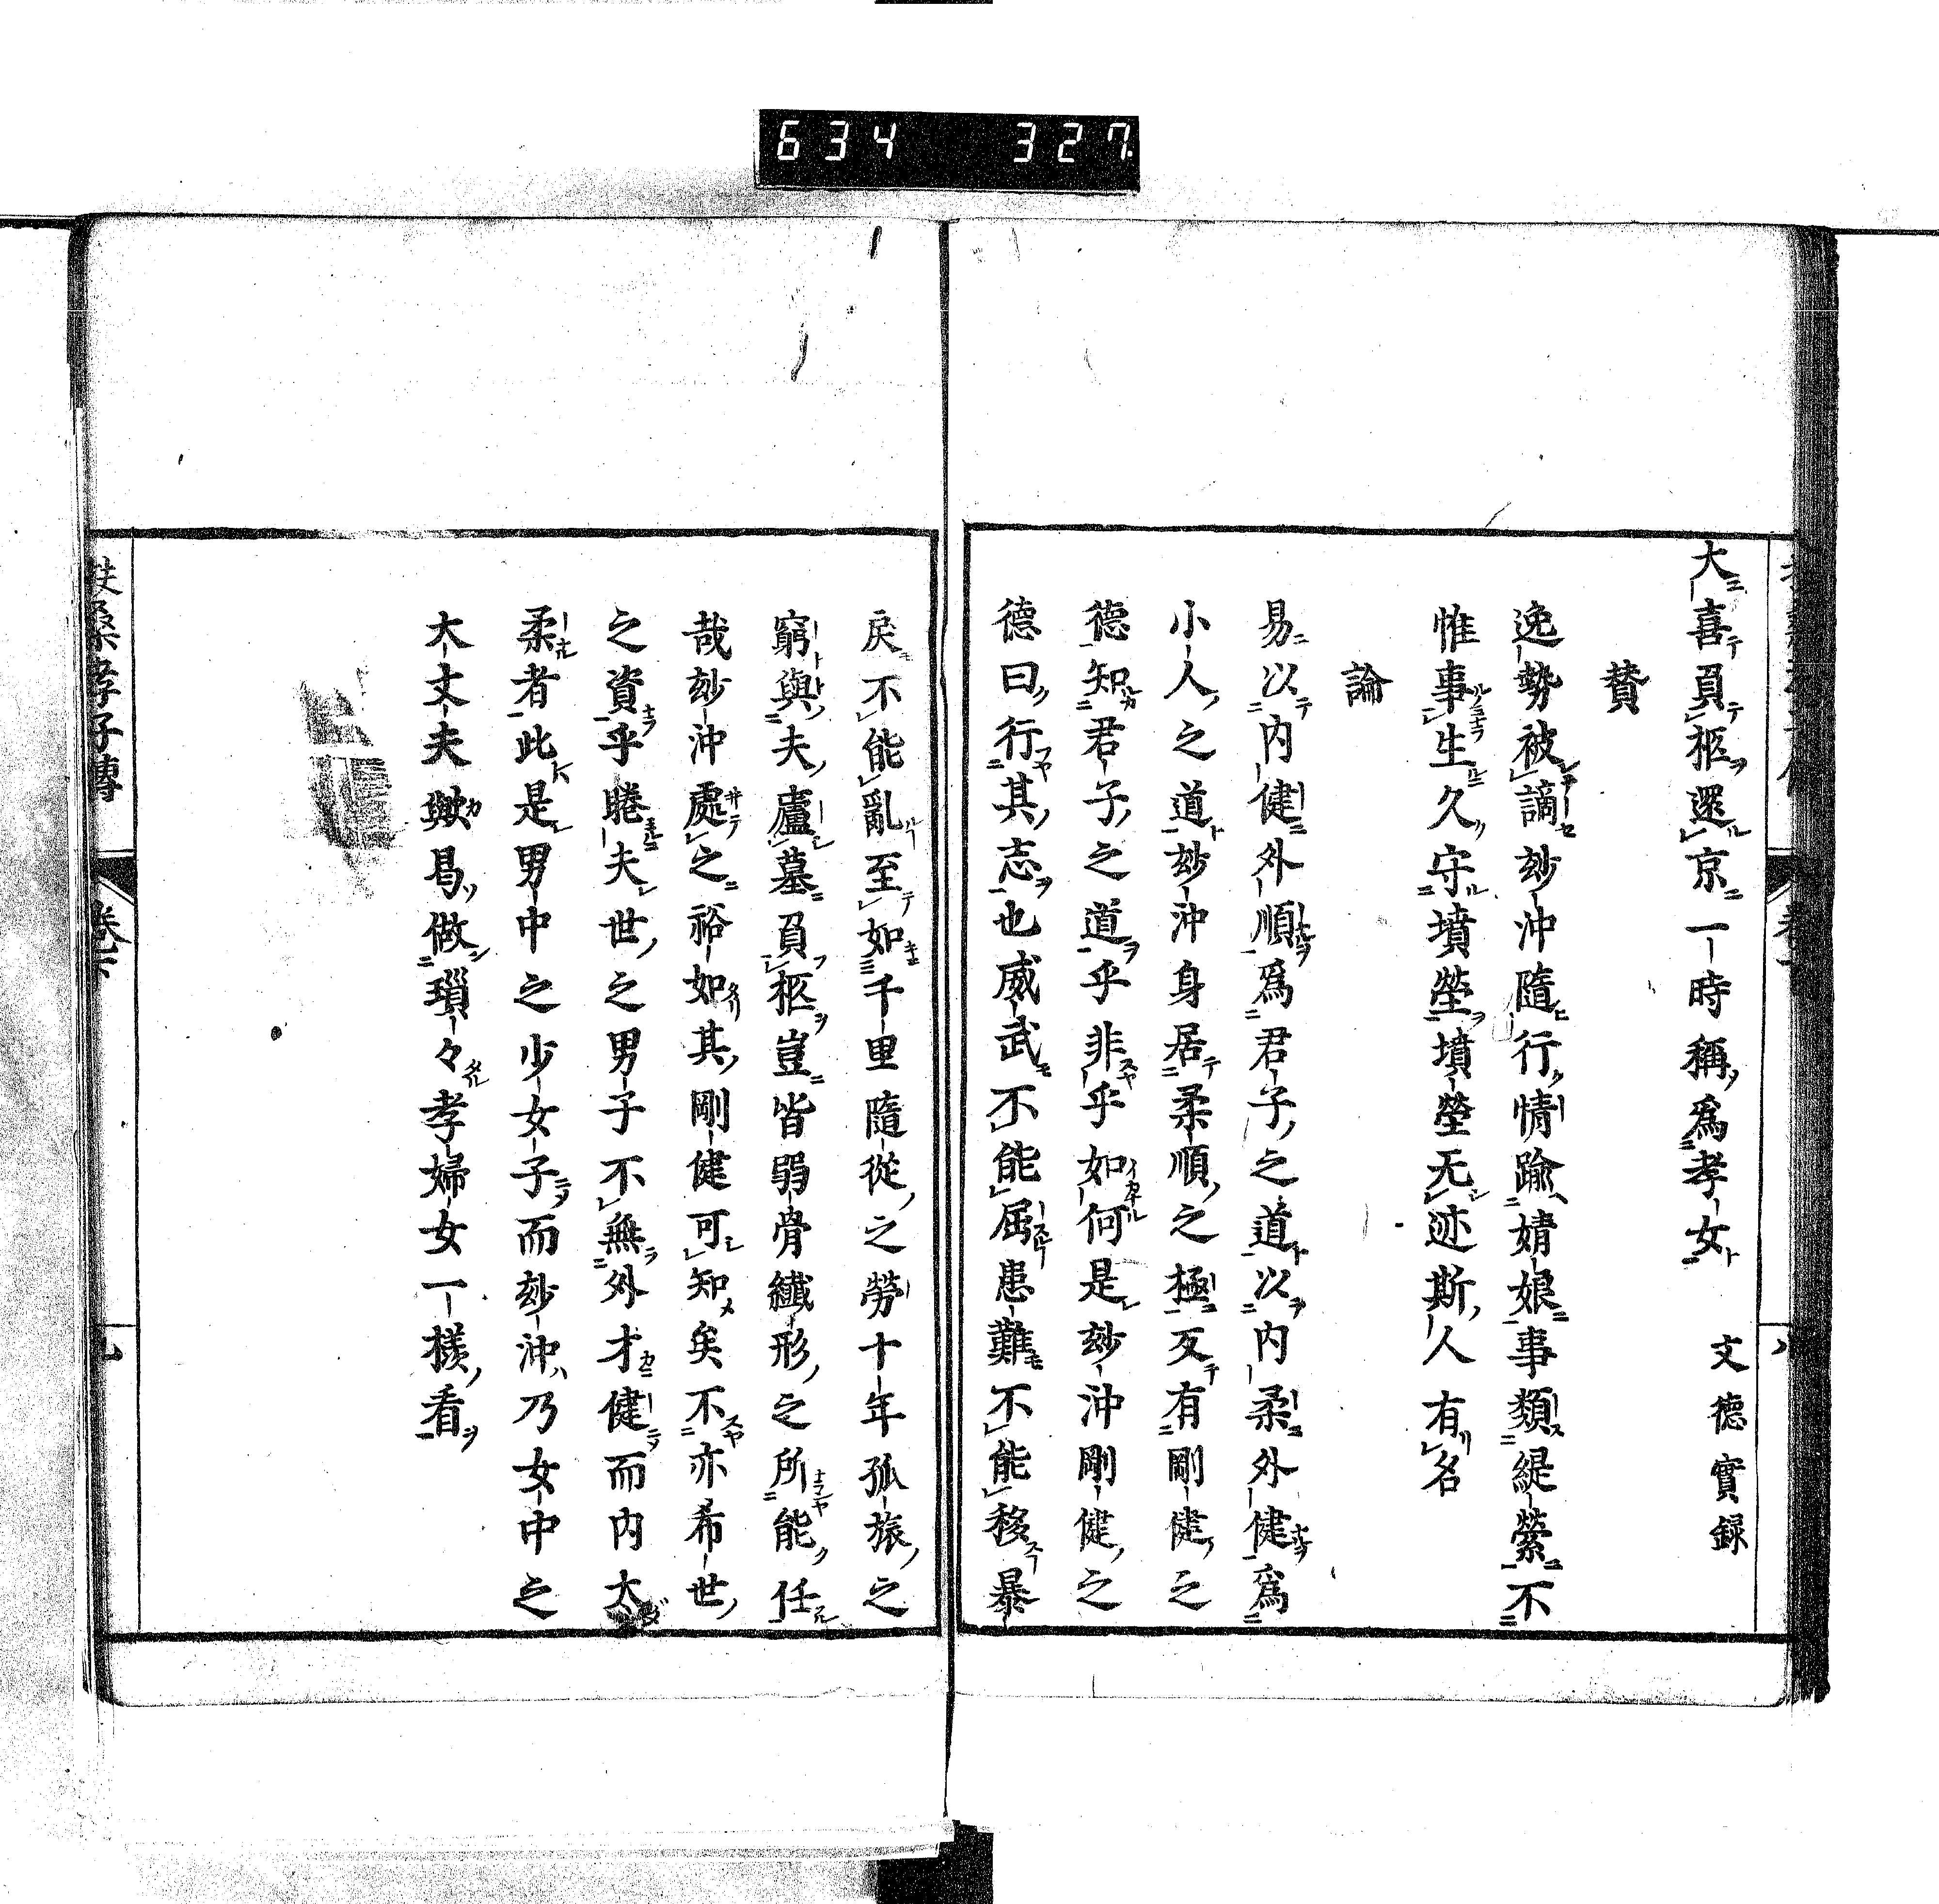 634 327
大喜負柩還京一時稱爲孝女 文德實録
贊
逸勢被謫玅沖隨行情踰婧娘事類緹縈不
惟事生久守墳塋墳塋无迹斯人有名
論
易以内健外順爲君子之道以内柔外健爲
小人之道玅沖身居柔順之極反有剛健之
德知君子之道乎非乎如何是玅沖剛健之
德曰行其志也威武不能屈患難不能移暴
戾不能亂至如千里隨從之勞十年孤旅之
窮與夫廬墓負柩豈皆弱骨纖形之所能任
哉玅沖處之裕如其剛健可知矣不亦希世
之資乎睠夫世之男子不無外才健而内太
柔者此是男中之少女子而玅沖乃女中之
大丈夫歟曷做瑣々孝婦女一樣看
扶桑孝子傳 卷下 九